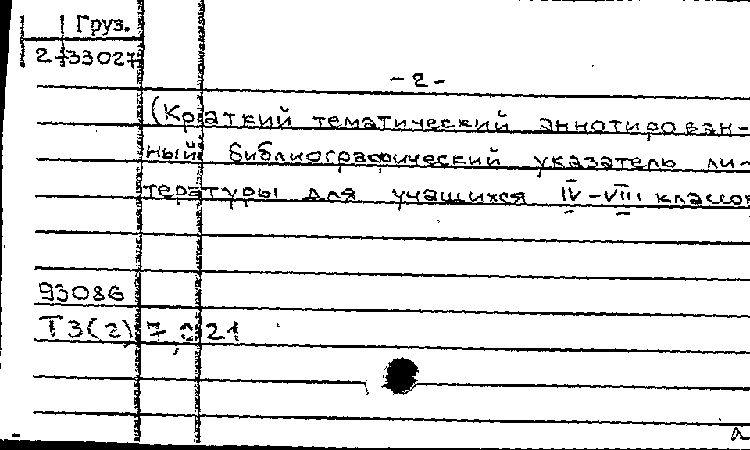 Груз.
2-33027
-2-
(Краткий тематический аннотирован=
ный библиографический указатель ли-
тературы для учащихся IV-VIII классов
93086
Т3(2)7,021